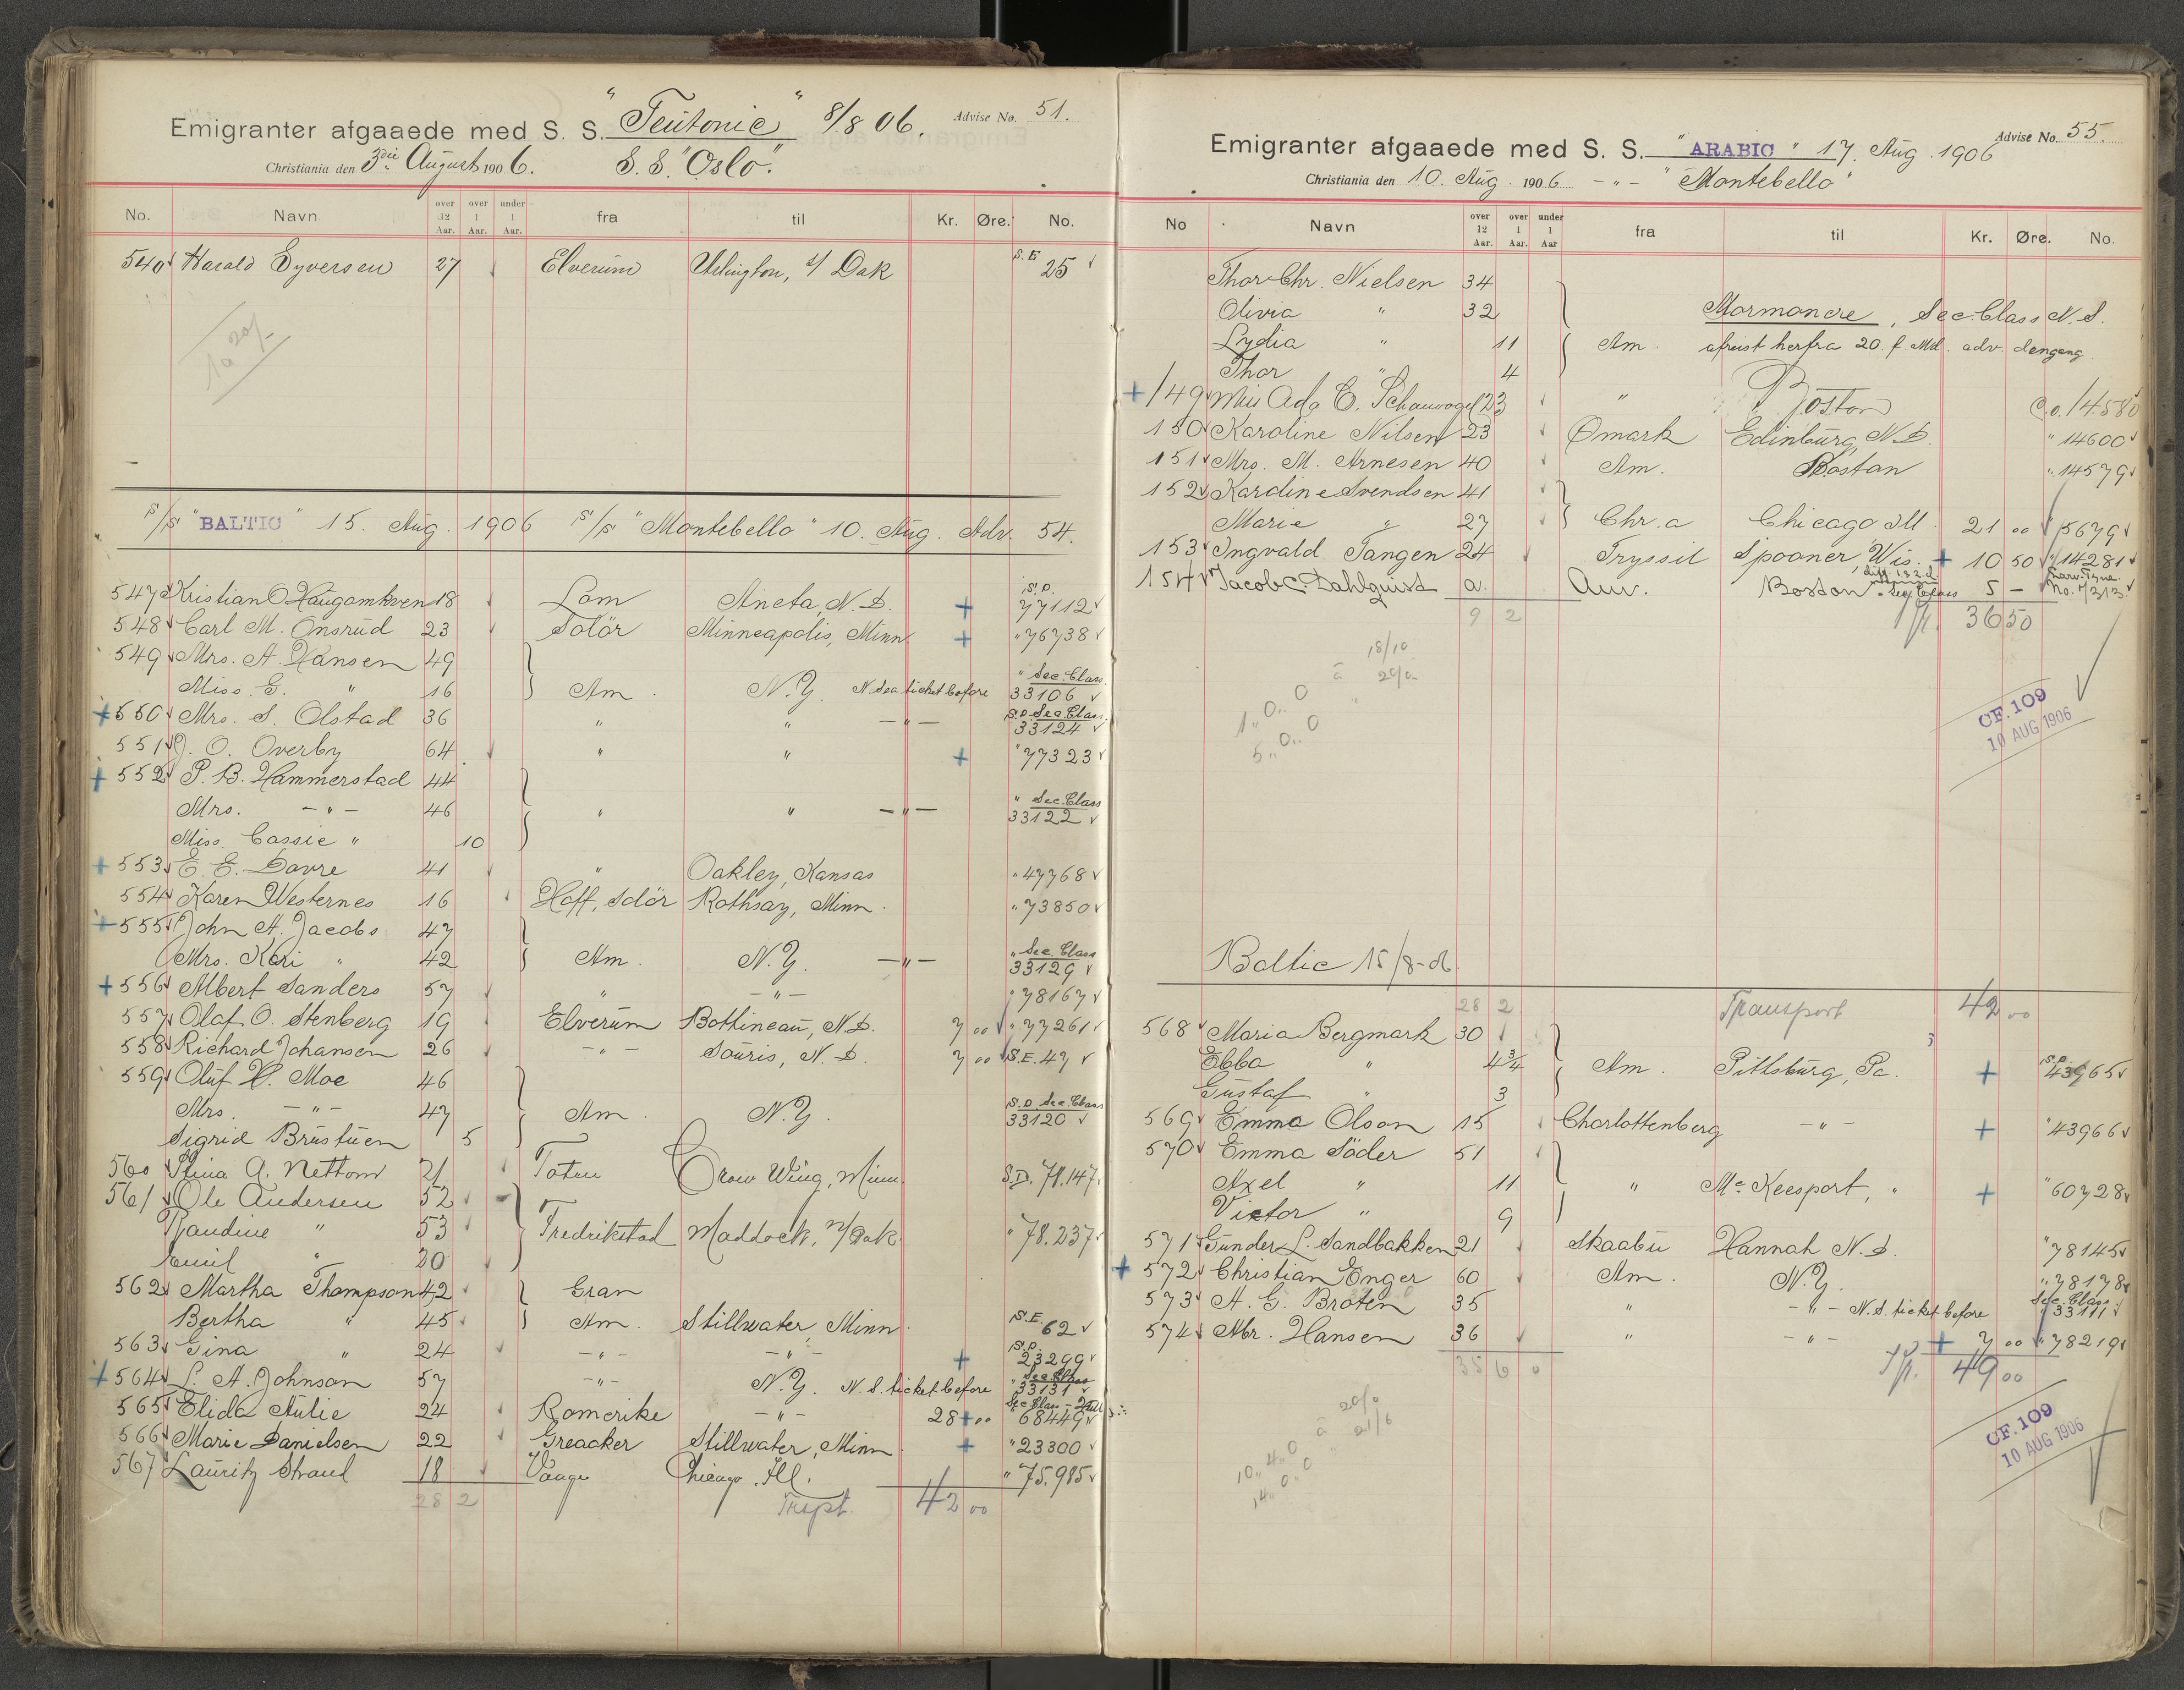 Emigranter afgaaede med S. S. "Teutonic" 8/8 06. Advise No. 51.
Christiania den 3die August 1906. S.S. "Oslo".
No. Navn over 12 Aar. over 1 Aar. under 1 Aar. fra til Kr. Øre. No.
540 Harald Syversen 27 Elverum Arlington, S/ Dak S.E. 25
S/S "BALTIC" 15. Aug. 1906 S/S "Montebello" 10. Aug. Adv. 54.
547 Kristian O Haugamkven 18 Lom Aneta, N.D. + S.D. 77112
548 Carl M. Onsrud 23 Solör Minneapolis, Minn + " 76738
549 Mrs. A. Hansen 49 " Sec. Class.
Miss. G. " 16 Am. N.Y. N Sea ticket before 33106
+ 550 Mrs. S. Olstad 36 " " — " — S.D. Sec Class. 33124
551 J. O. Overby 64 " " + " 77323
+ 552 P. B. Hammerstad 44
Mrs. — " — 46 " " — " — " Sec. Class 33122
Miss. Cassie " 10
+ 553 E. E. Davre 41 " Oakley, Kansas " 47768
554 Karen Westernes 16 Hoff, Solör Rothsay, Minn. " 73850
+ 555 John A. Jacobs 47
Mrs. Kari " 42 Am. N.Y. — " — " Sec. Class 33129
+ 556 Albert Sanders 57 " — " — " 78167
557 Olaf O. Stenberg 19 Elverum Bottineau, N.D. 7 00 " 77261
558 Richard Johansen 26 — " — Souris, N.D. 7 00 S.E. 47
559 Oluf H. Moe 46
Mrs. — " — 47 Am. N.Y. S.D Sec Class 33120
Sigrid Brustuen 5
560 Stina A. Nettom 21 Toten Crow Wing, Minn. S.D. 78.147.
561 Ole Andersen 52
Randine " 53 Fredrikstad Maddock, N/Dak " 78.237.
Emil " 20
562 Martha Thompson 42 Gran
Bertha " 45 Am. Stillwater, Minn. S.E. 62
563 Gina " 24 — " — — " — + S.D. 23299
+ 564 L. A. Johnson 57 — " — N.Y. N.S. ticket before " Sec Class 33131
565 Elida Aulie 24 Romerike — " — 28 + 00 68449
566 Marie Danielsen 22 Greacker Stillwater, Minn + " 23300
567 Lauritz Strand 18 Vaage Chicago. Ill. " 75.985
28 2 Trspt. 42 00
Emigranter afgaaede med S. S. "ARABIC" 17. Aug. 1906 Advise No. 55.
Christiania den 10. Aug. 1906 — " — "Montebello"
No Navn over 12 Aar. over 1 Aar. under 1 Aar fra til Kr. Øre. No.
Thor Chr. Nielsen 34
Olivia " 32 Mormoncre, Sec. Class N.S.
Lydia " 11 Am. afreist herfra 20. f. Md. adv. dengang.
Thor " 4
+ 149 Miss Ada C. Schauvogel 23 " Boston C.o. 14580
150 Karoline Nilsen 23 Ømark Edinburg, N.D. " 14600
151 Mrs. M. Arnesen 40 Am. Boston " 14579
152 Kardine Svendsen 41
Marie " 27 Chr.a Chicago Ill. 21 00 15679
153 Ingvald Tangen 24 Tryssil Spooner, Wis. + 10 50 " 14281
154 Jacob C. Dahlquist a. Am. Boston 5 —
9 2 36 50
18/10
à 20/-
1 " 0 .. 0
5 " 0 .. 0
CF. 109
10 AUG 1906
Baltic 15/8-06.
28 2 Transport 42 00
568 Maria Bergmark 30
Ebba " 4 3/4 Am. Pittsburg, Pa. + S.D. 43965
Gustaf " 3
569 Emma Olson 15 Charlottenberg — " — + " 43966
570 Emma Söder 51
Axel " 11 " Mc Keesport, " + " 60728
Victor " 9
571 Gunder L. Sandbakken 21 Skaabu Hannah N.D. " 78145
+ 572 Christian Enger 60 Am. N.Y. " 78178
573 A. G. Broten 35 " — " — N.S. ticket before Sec. Class. " 33111
574 Mr. Hansen 36 " — " — + 7 00 " 78219
35 6 0 49 00
20/0
à 21/6
10 .. 4 .. 0
14 .. 0 .. 0
CF. 109
10 AUG 1906